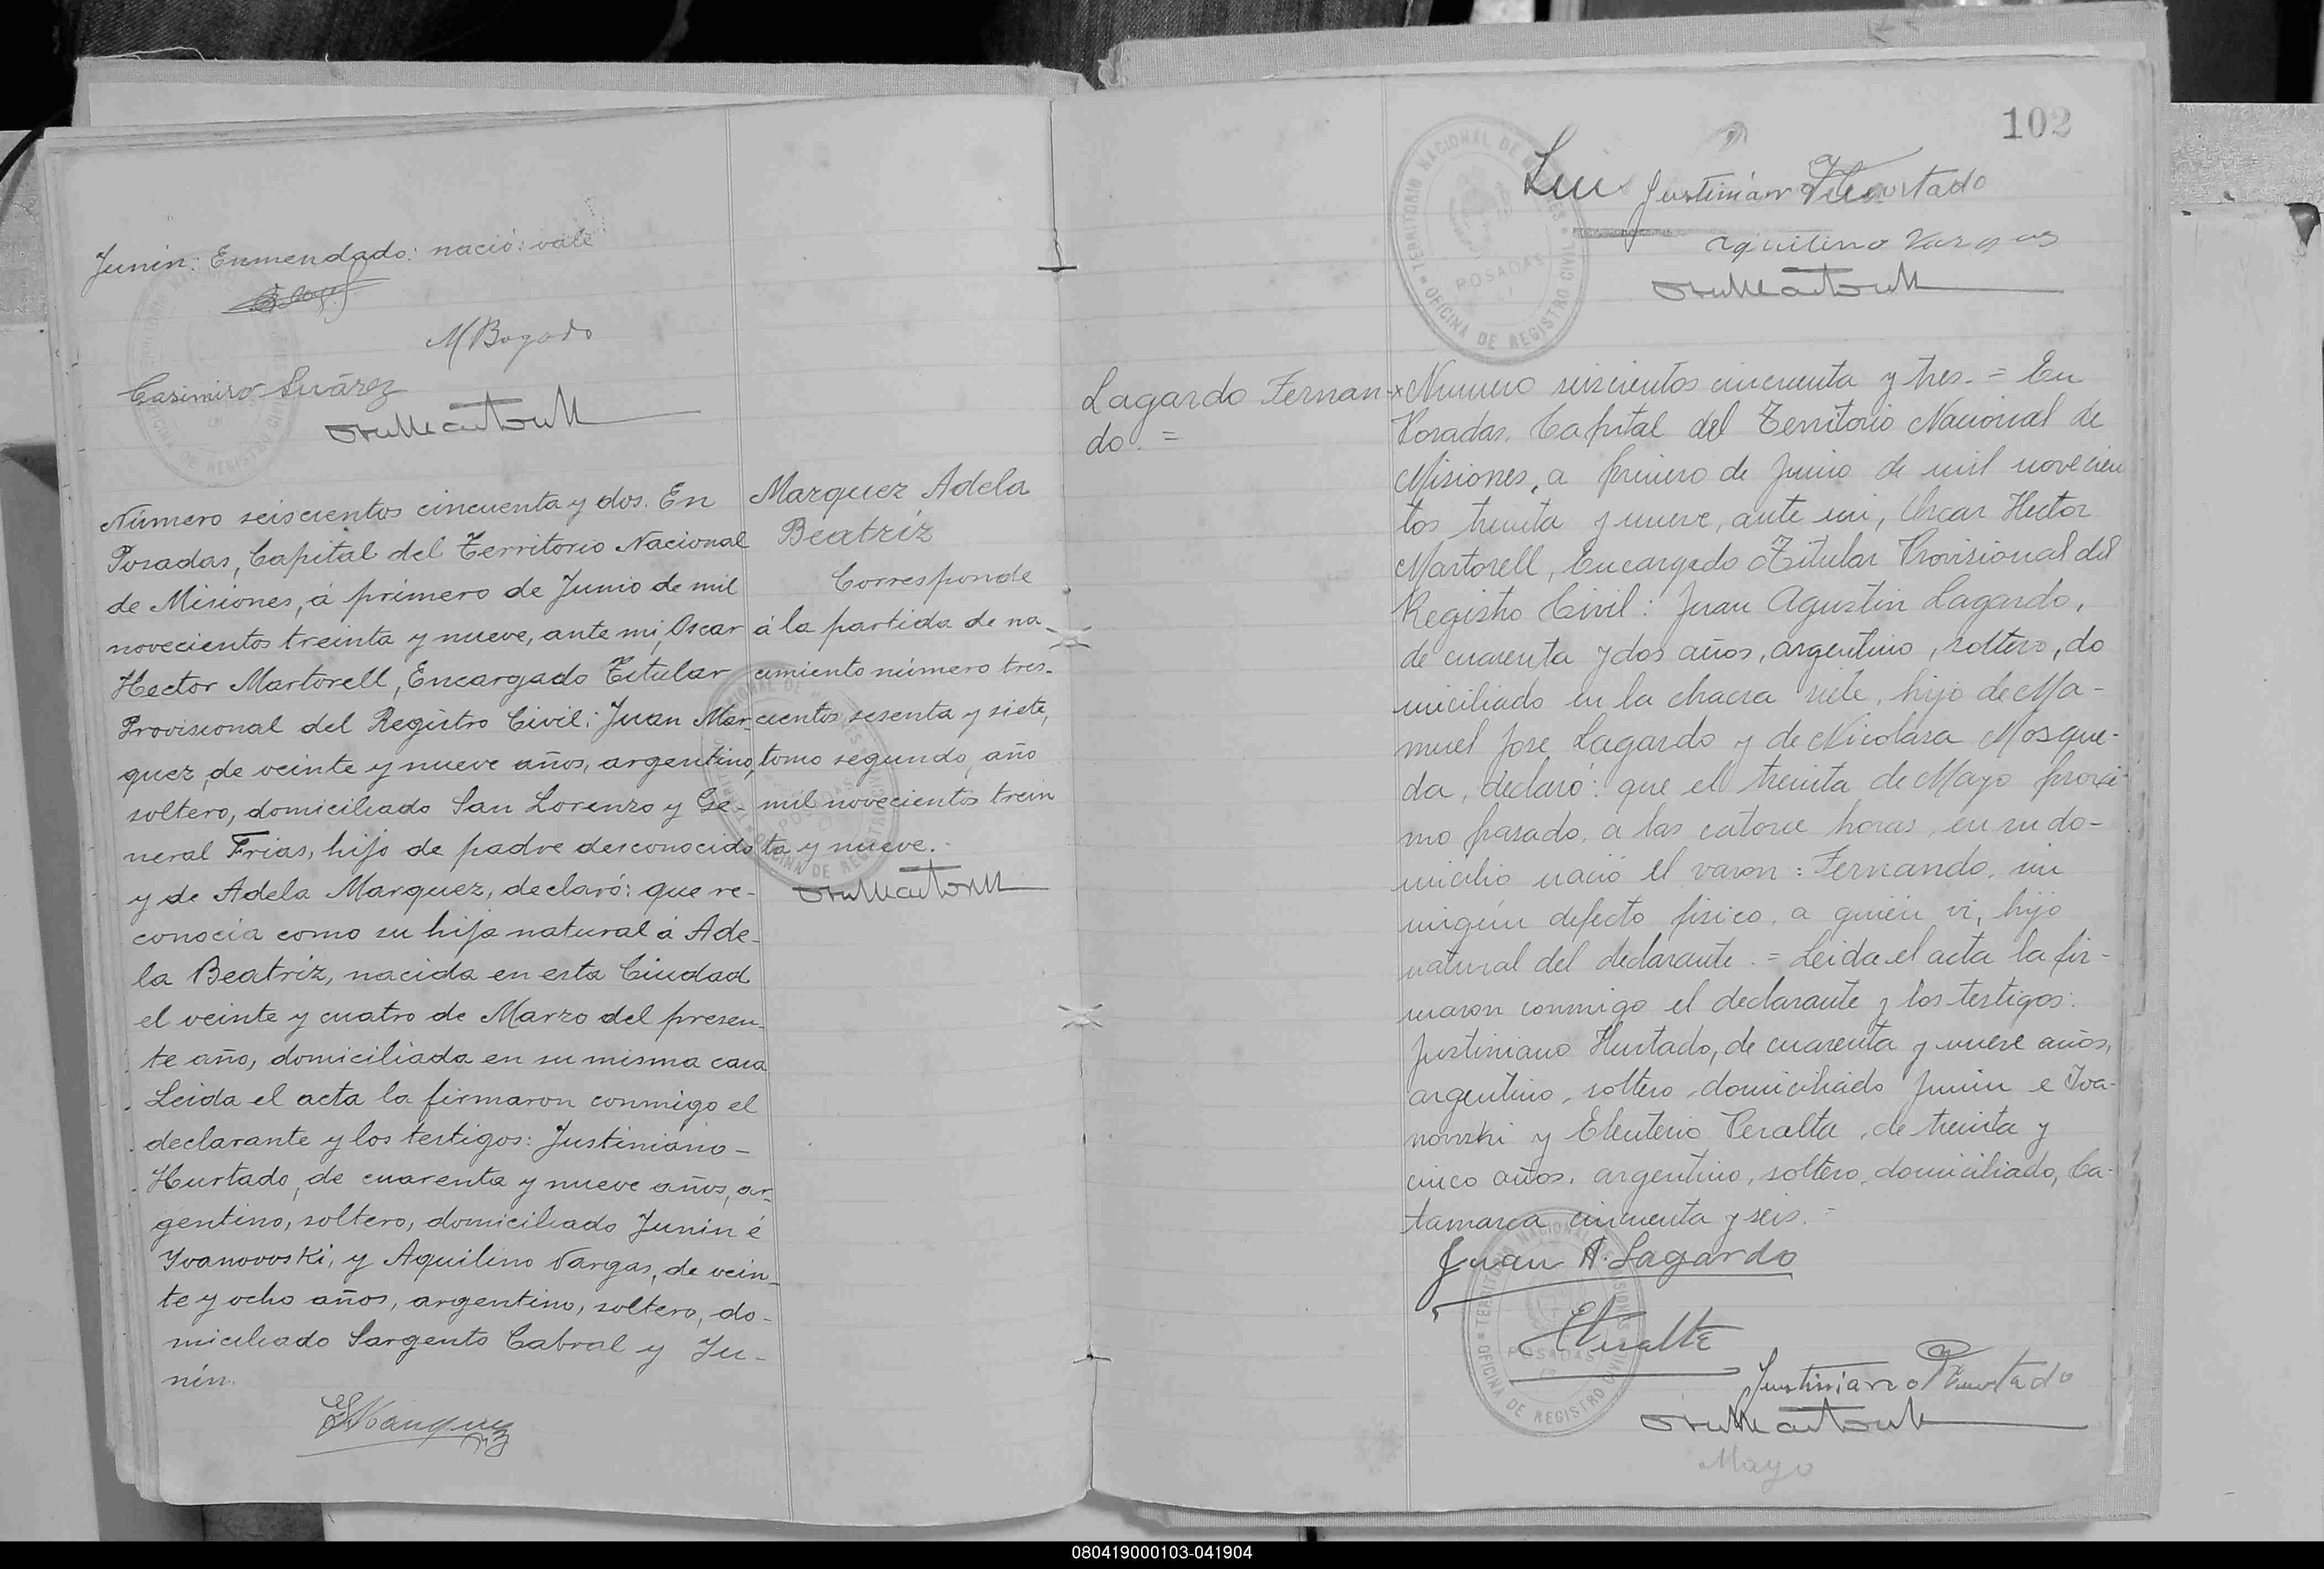 Junin. Enmendado: nació: vale
M Bogado
Casimiro Suárez
Número seiscientos cincuenta y dos. En
Posadas, Capital del Territorio Nacional
de Misiones, á primero de Junio de mil
novecientos treinta y nueve, ante mi, Oscar
Hector Martorell, Encargado Titular
Provisional del Registro Civil: Juan Mar-
quez, de veinte y nueve años, argentino,
soltero, domiciliado San Lorenzo y Ge-
neral Frias, hijo de padre desconocido
y de Adela Marquez, declaró: que re-
conocia como su hija natural á Ade-
la Beatriz, nacida en esta Ciudad
el veinte y cuatro de Marzo del presen-
te año, domiciliada en su misma casa
Leida el acta la firmaron conmigo el
declarante y los testigos: Justiniano-
Hurtado, de cuarenta y nueve años, ar-
gentino, soltero, domiciliado Junin é
Yvanovoski, y Aquilino Vargas, de vein-
te y ocho años, argentino, soltero, do-
miciliado Sargento Cabral y Ju-
nin.
Marquez Adela
Beatriz
Corresponde
á la partida de na-
cimiento número tres-
cientos sesenta y siete,
tomo segundo, año
mil novecientos trein
ta y nueve.-
102
Justinian Hurtado
aquilino Vargas
TERRITORIO NACIONAL DE MISIONES
POSADAS
OFICINA DE REGISTRO CIVIL
Lagardo Fernan-
do. =
x Numero seiscientos cincuenta y tres. = En
Posadas, Capital del Territorio Nacional de
Misiones, a primero de Junio de mil novecien
tos treinta y nueve, ante mi, Oscar Hector
Martorell, Encargado Titular Provisional del
Registro Civil: Juan Agustin Lagardo,
de cuarenta y dos años, argentino, soltero, do
miciliado en la chacra siete, hijo de Ma-
nuel Jose Lagardo y de Nicolasa Mosque-
da, declaró: que el treinta de Mayo proxi-
mo pasado, a las catorce horas, en su do-
micilio nació el varon: Fernando, sin
ningún defecto fisico, a quién vi, hijo
natural del declarante. = Leida el acta la fir-
maron conmigo el declarante y los testigos:
Justiniano Hurtado, de cuarenta y nueve años,
argentino, soltero, domiciliado Junin e Iva-
novski y Eleuterio Peralta, de treinta y
cinco años, argentino, soltero, domiciliado, Ca-
tamarca cincuenta y seis. =
Juan A. Lagardo
EPeralta
Justiniano Hurtado
Mayo
080419000103-041904